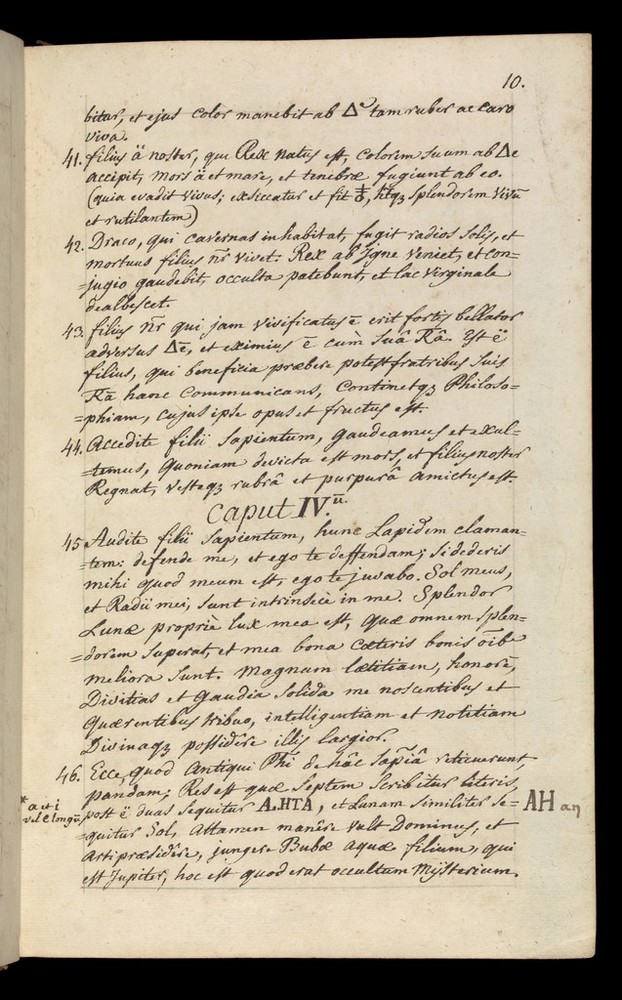 10.
bitur, et ejus color manebit ab △e tam ruber ac caro
viva.
41. filius ä noster, qui Rex natus est, colorem suum ab △e
accipit, mors ä et mare, et tenebræ fugiunt ab eo.
(quia evadit vivus; exsiccatur et fit, htq3 splendorem vivū
et rutilantem)
42. Draco, qui cavernas inhabitat, fugit radios Solis, et
mortuus filius nr̃ vivet. Rex ab Igne veniet, et con=
=jugio gaudebit, occulta patebunt, et lac virginale
dealbescet.
43. filius nr̃ qui jam vivificatus ē erit fortis bellator
adversus △ē, et eximius ē cum suâ R̃â. Est ë
filius, qui beneficia præbere potest fratribus suis
R̃ā hanc communicans, continetq3 Philoso=
=phiam, cujus ipse opus et fructus est.
44. Accedite filii Sapientum, gaudeamus et exul=
=temus, quoniam devicta est mors, et filius noster
Regnat, vesteq3 rubrâ et purpurâ amictus est.
Caput IV.ū
45 Audite filii Sapientum, hunc Lapidem claman=
=tem: defende me, et ego te deffendam; si dederis
mihi quod meum est, ego te juvabo. Sol meus,
et Radii mei, sunt intrinsicè in me. Splendor
Lunæ propriè lux mea est, quæ omnem splen=
=dorem superat, et mea bona cæteris bonis oīb
meliora sunt. Magnam lætitiam, honorē,
Divitias et gaudia solida me noscentibus et
quærentibus tribuo, intelligentiam et notitiam
Divinaq3 possidere illis largior.
46. Ecce, quod Antiqui Phi de hâc Sap̃iâ reticuerunt,
pandam; Res est quæ Septem scribitur literis,
* a et i
vel e longū
post ë duas sequitur A.HTA, et Lunam similiter se=
AH an
quitur Sol, attamen manere vult Dominus, et
arti præsidere, jungere Bubæ aquæ filium, qui
est Jupiter, hoc est quod erat occultum Mysterium.